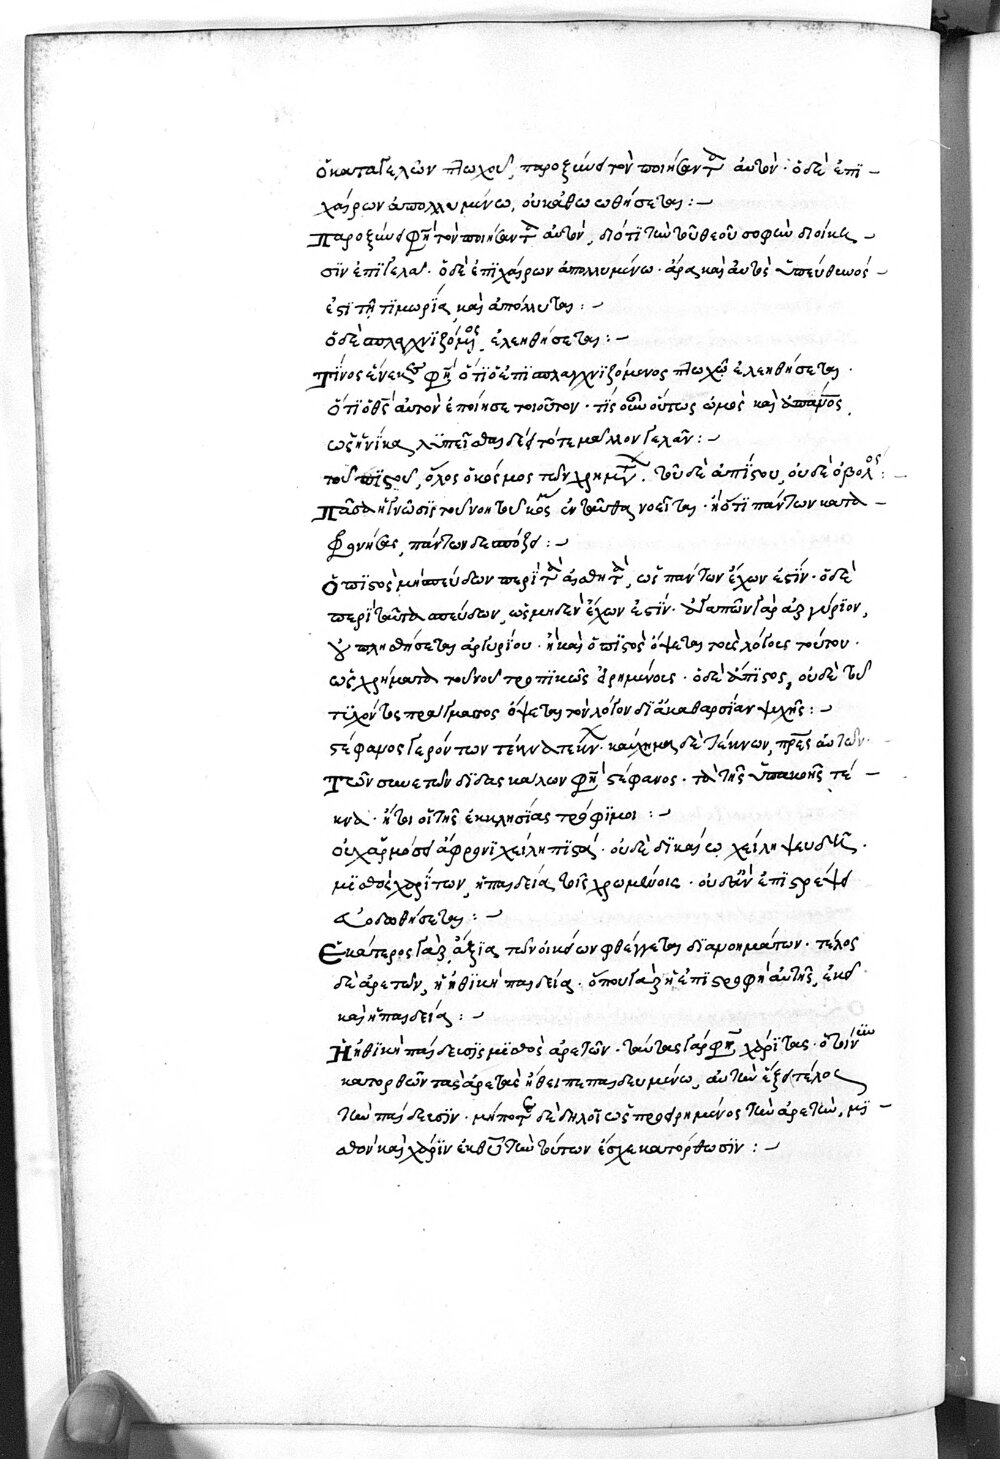 ὁ καταγελῶν πτωχοῦ, παροξύνει τὸν ποιήσαντα αὐτόν· ὁ δὲ ἐπι
χαίρων ἀπολλυμένω, οὐκ ἀθωωθήσεται:
Παροξύνει φησὶ τὸν ποιήσαντα αὐτόν, διότι τὴν τοῦ θεοῦ σοφὴν διοίκη
σιν ἐπιγελᾶ· ὁ δὲ ἐπιχαίρων ἀπολλυμένω· ἄρα καὶ αὐτὸς ὑπεύθυνός
ἐστι τῆ τιμωρία, καὶ ἀπόλλυται:
ὁ δὲ σπλαγχνιζόμενος, ἐλεηθήσεται:
Τίνος ἕνεκεν φησὶ ὅτι ὁ ἐπισπλαγχνιζόμενος πτωχῶ ἐλεηθήσεται·
ὅτι ὁ θεὸς αὐτὸν ἐποίησε τοιοῦτον· τίς οὖν οὕτως ὠμὸς καὶ
ὡς ἡνίκα λυπεῖσθαι δεῖ τότε μᾶλλον γελᾶν:
τοῦ πιστοῦ, ὅλος ὁ κόσμος τῶν χρημάτων· τοῦ δὲ ἀπίστου, οὐδὲ ὀβολός:
Πᾶσα ἡ γνῶσις τοῦ νοητοῦ κόσμου ἐνταῦθα νοεῖται· ἢ ὅτι πάντων κατα
φρονήσας, πάντων δεσπόζει:
Ὁ πιστὸς μὴ σπεύδων περὶ τὰ αἰσθητὰ, ὡς πάντων ἔχων ἐστίν· ὁ δὲ
περὶ ταῦτα σπεύδων, ὡς μηδὲν ἔχων ἐστίν· ὁ ἀγαπῶν γὰρ ἀργύριον,
οὐ πλησθήσεται ἀργυρίου· ἢ καὶ ὁ πιστὸς ὄψεται τοὺς λόγους τούτου·
ὡς χρήματα τοῦ νοῦ τροπικῶς εἰρημένους· ὁ δὲ ἄπιστος, οὐδὲ τοῦ
τυχόντος πράγματος ὄψεται τὸν λόγον δι' ἀκαθαρσίαν ψυχῆς:
στέφανος γερόντων τέκνα τέκνων· καύχημα δὲ τέκνων, πατέρες αὐτῶν·
Τῶν συνετῶν διδασκάλων φησὶ στέφανος· τὰ τῆς ὑπακοῆς τέ
κνα· ἤτοι οἱ τῆς ἐκκλησίας τρόφιμοι:
οὐχ ἁρμόσει ἄφρονι χείλη πιστά· οὐδὲ δικαίω χείλη ψευδῆ·
μισθὸς χαρίτων, ἡ παιδεία τοῖς χρωμένοις· οὗ δ' ἂν ἐπιστρέψει
εὐοδωθήσεται:
Ἑκάτερος γὰρ ἄξια τῶν οἰκείων φθέγγεται διανοημάτων· τέλος
δὲ ἀρετῶν, ἡ ἠθικὴ παιδεία· ὅπου γὰρ ἡ ἐπιστροφὴ αὐτῆς, ἐκεῖ
καὶ ἡ παιδεία:
Ἡ ἠθικὴ παίδευσις μισθὸς ἀρετῶν· ταύτας γάρ φησι χάριτας· ὁ τοίνυν
κατορθῶν τὰς ἀρετὰς ἤθει πεπαιδευμένω, αὐτὴν ἕξει τέλος
τὴν παίδευσιν· μήποτε δὲ δηλοῖ ὡς προειρημένος τὴν ἀρετὴν, μι
σθὸν καὶ χάριν ἐκ θεοῦ τὴν τούτων ἔσχε κατόρθωσιν: